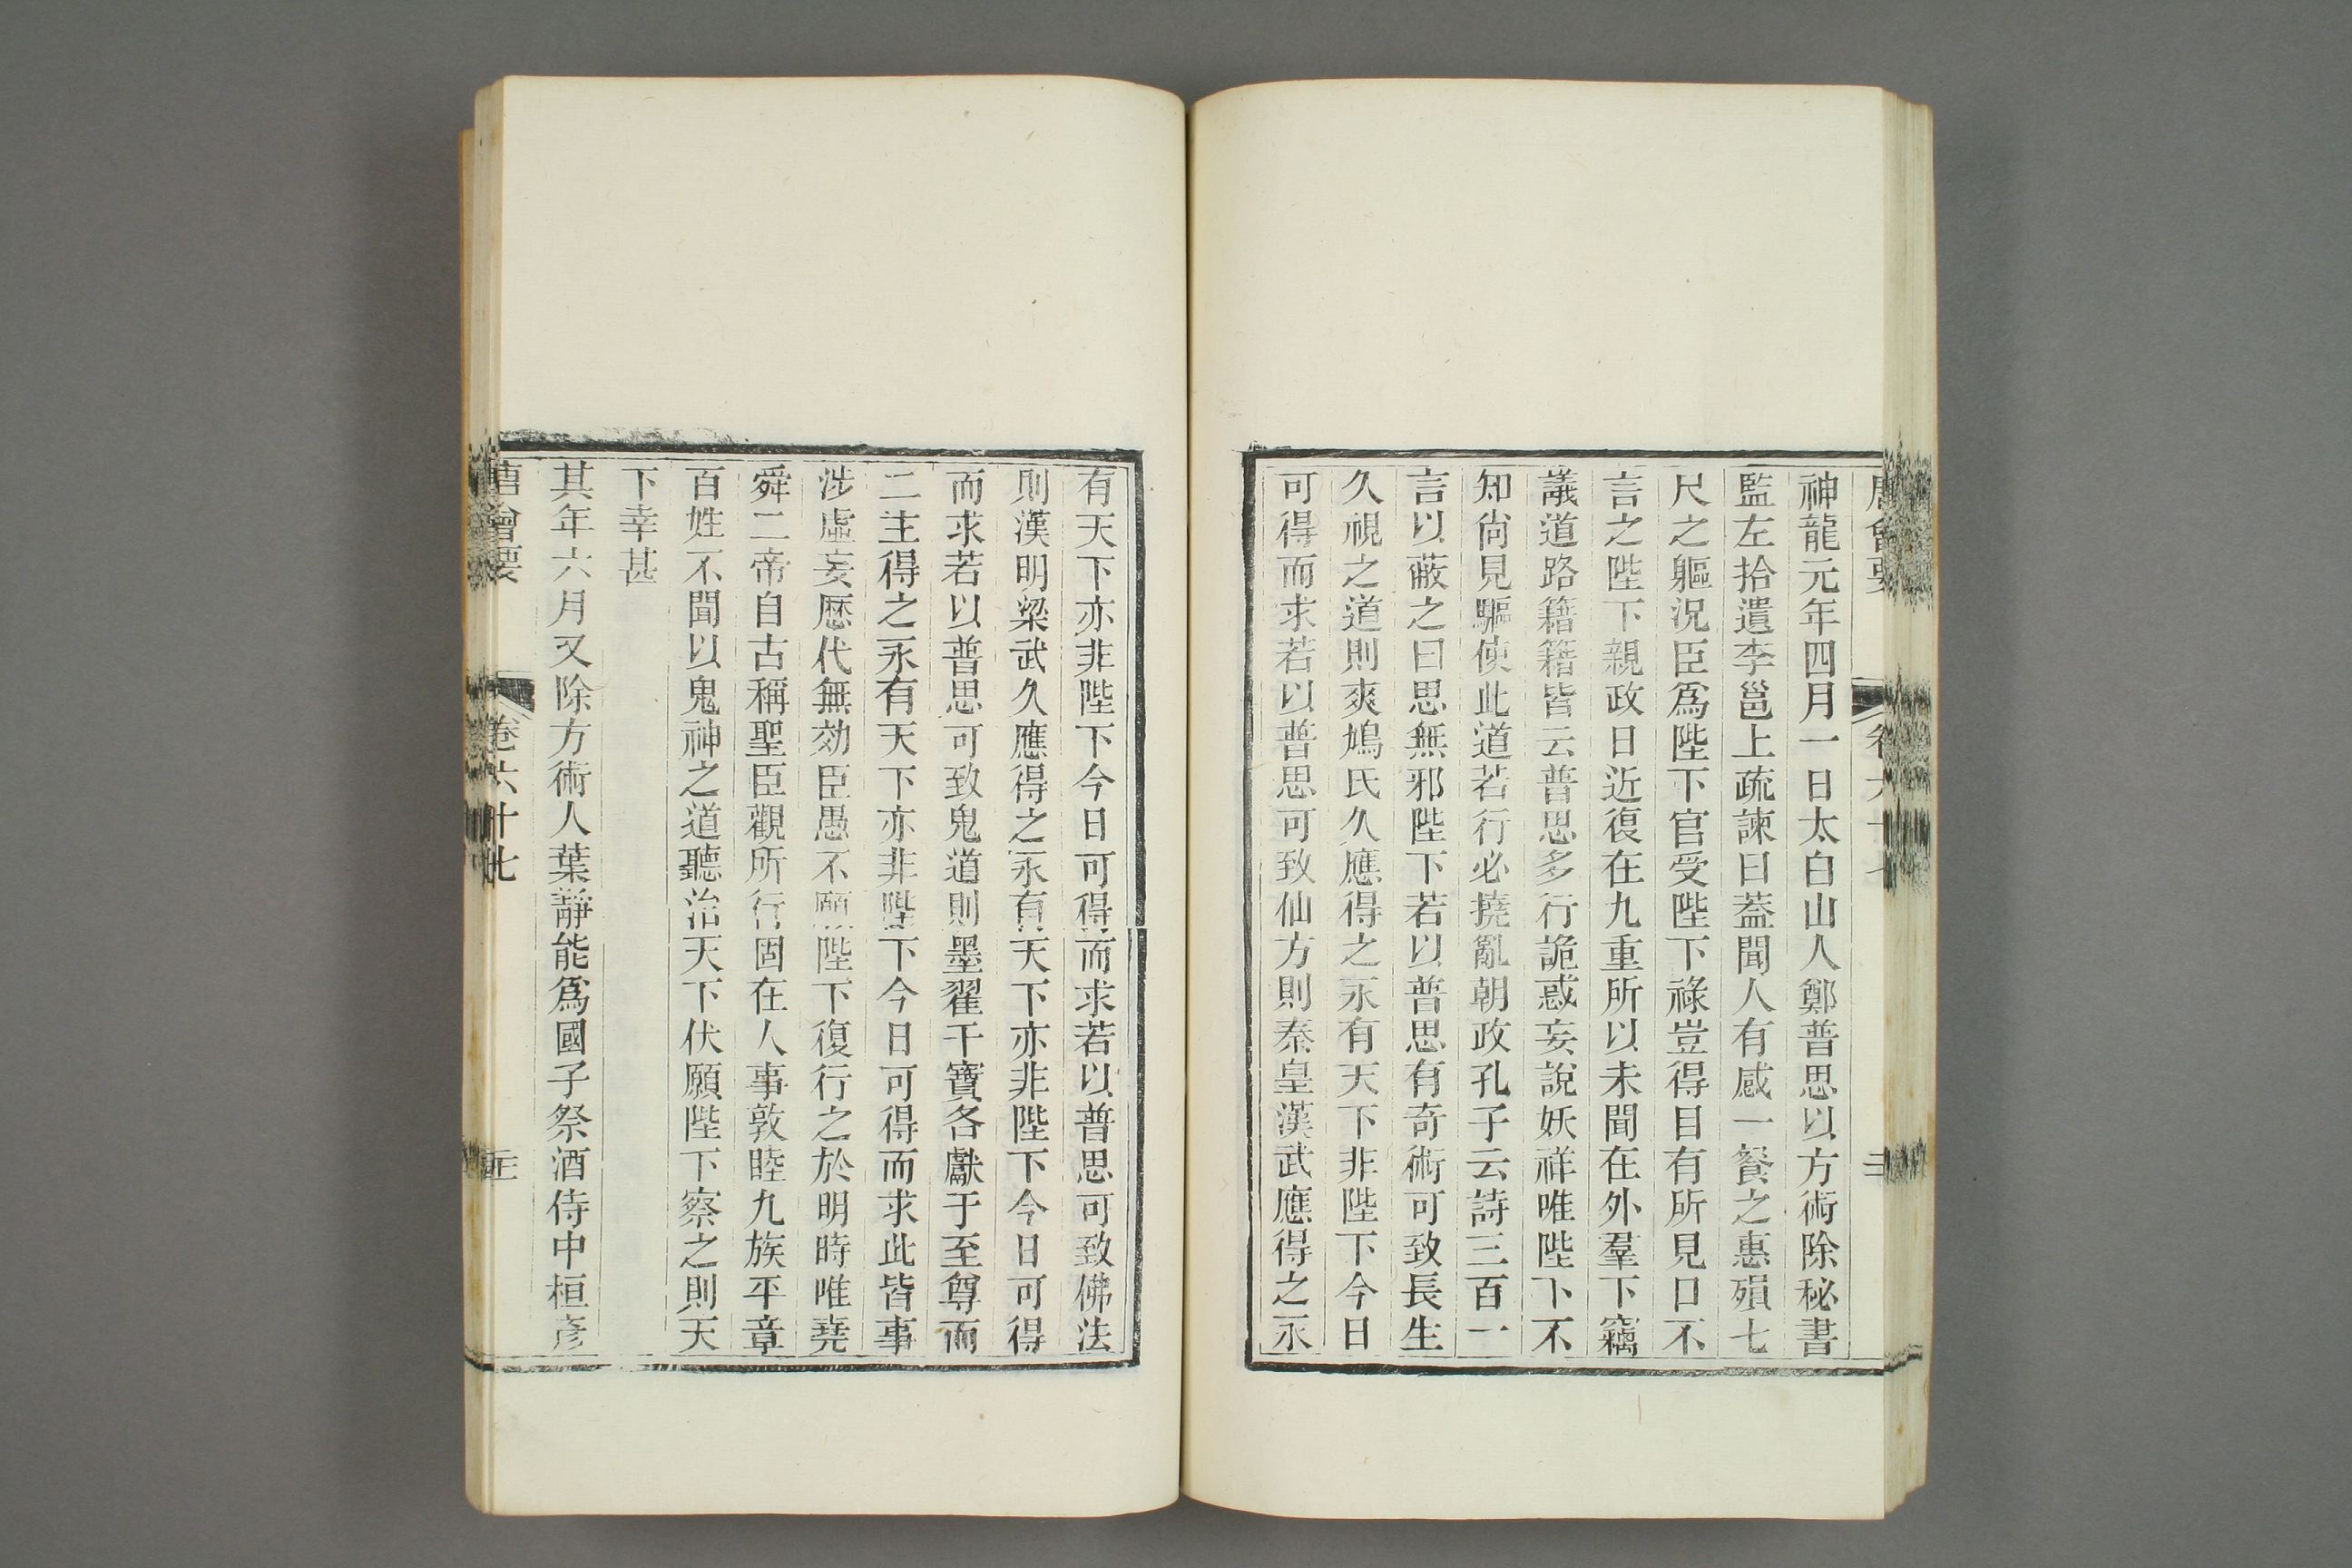 神龍元年四月一日太白山人鄭普思以方術除秘書
監左拾遺李邕上疏諫曰葢聞人有感一餐之惠殞七
尺之軀況臣爲陛下官受陛下祿豈得目有所見口不
言之陛下親政日近復在九重所以未聞在外羣下竊
議道路籍籍皆云普思多行詭惑妄說妖祥唯陛下不
知尙見驅使此道若行必撓亂朝政孔子云詩三百一
言以蔽之曰思無邪陛下若以普思有奇術可致長生
久視之道則爽鳩氏久應得之永有天下非陛下今日
可得而求若以普思可致仙方則秦皇漢武應得之永
有天下亦非陛下今日可得而求若以普思可致佛法
則漢明梁武久應得之永有天下亦非陛下今日可得
而求若以普思可致鬼道則墨翟干寶各獻于至尊而
二主得之永有天下亦非陛下今日可得而求此皆事
涉虛妄歷代無効臣愚不願陛下復行之於明時唯堯
舜二帝自古稱聖臣觀所行固在人事敦睦九族平章
百姓不聞以鬼神之道聽治天下伏願陛下察之則天
下幸甚
其年六月又除方術人葉靜能爲國子祭酒侍中桓彥
唐會要 卷六十七